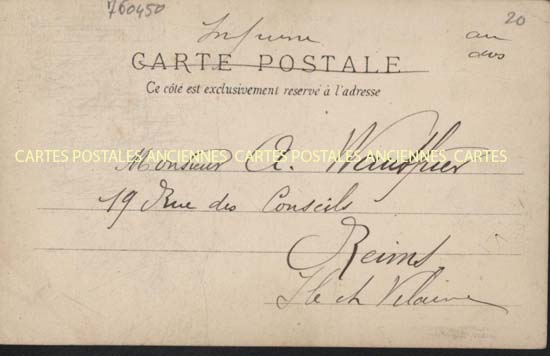 760450
20
au
dos
CARTE POSTALE
Ce côté est exclusivement reservé à l'adresse
CARTES POSTALES ANCIENNES CARTES POSTALES ANCIENNES CARTES
Monsieur A.
19 Rue des Conseils
Reims
Ile et Vilaine